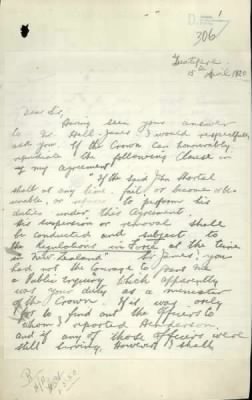 306
15th April 1920
Dear Sir,
Having seen your answer
to Mr. Hall-Jones I would respectfully
ask you. If the Crown can honourably
repudiate the following Clause in
my agreement
"If the said John Hartel
shall at any time fail or become
unable, or refuses to perform his
duties under this Agreement.
his suspension or removal shall
be conducted and subject to
the Regulations in Force at the time
in New Zealand" Sir James, you
had not the Courage to grant me
a Public Enquiry which apparently
was your duty as a minister
of the Crown. If it was only
for to find out the Officers to
whom I reported Henderson.
and if any of those officers were
still serving. However I shall